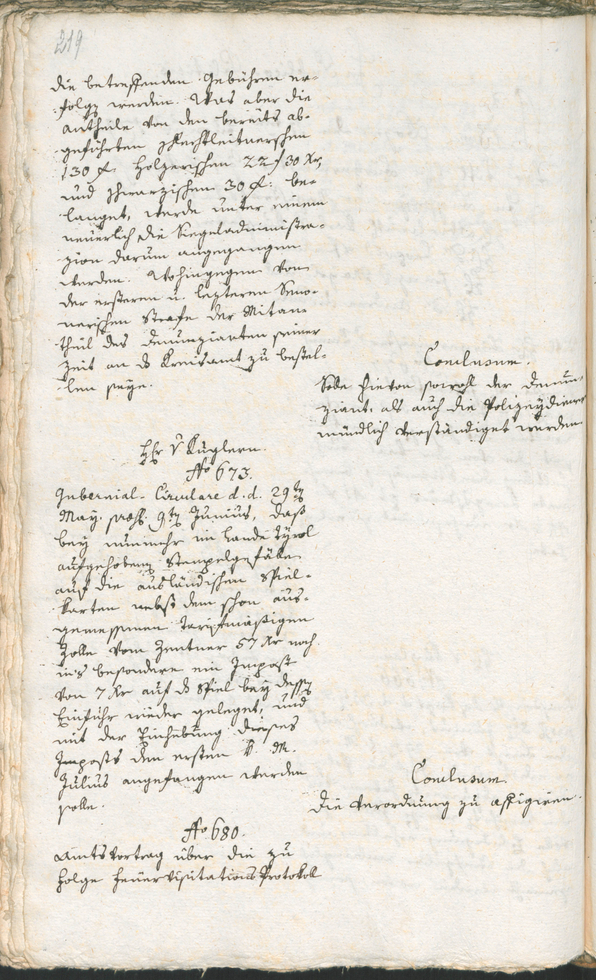 219
die betreffenden Gebühren er-
folgt werden. Was aber die
Antheile von den bereits ab-
geführten
130 f. Holzerischen 22 f 30 Xr,
und Schwarzischen 30 f: be-
langet, werde unter einem
neuerlich die Siegeladministra-
zion darum angegangen
werden. Wohingegen von
der ersteren u. lezteren
Strafe der Mitan-
theil des Denunzianten seiner
Zeit an das Kreisamt zu bestel-
len seye.
Conclusum.
Solle hievon sowohl der Denun-
ziant, als auch die Polizeydiener
mündlich verständiget werden
Hr v Kuglern.
No 673.
Gubernial-Circulare d. d. 29ten
May, praes. 9ten Junius, daß
bey nunmehr im Lande Tyrol
aufgehobenen Stempelgefälle
auf die ausländischen Spiel-
karten nebst dem schon aus-
gemessenen tarifmäßigen
Zolle vom Zentner 57 Xr noch
ins besondere ein Impost
von 7 Xr auf das Spiel bey dessen
Einfuhr wieder geleget, und
mit der Einhebung dieses
Imposts den ersten k. M.
Julius angefangen werden
solle.
Conclusum
Die Verordnung zu affigiren.
No 680.
Amtsvortrag über die zu
Folge Feuervisitations Protokoll